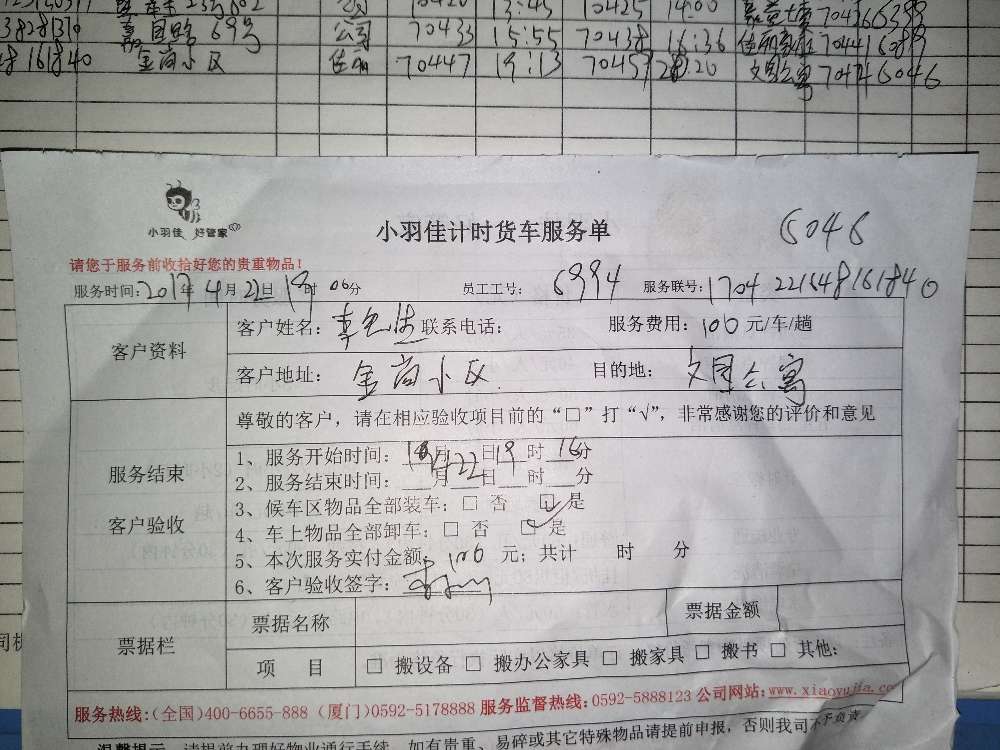 70420 13:45 10425 14:00
3828310 69号 公司 70433 15:55 70438 16:36
8161840 金尚小区 佳丽 70447 19:13 70457 20:20 文园公寓 6046
小羽佳 好管家
小羽佳计时货车服务单
6046
请您于服务前收拾好您的贵重物品！
服务时间：2017年 4月 22日 19时 06分 员工工号： 6994 服务联号：1704 22164 8161840
客户资料
客户姓名： 联系电话： 服务费用：100 元/车/趟
客户地址： 金尚小区 目的地： 文园公寓
服务结束
客户验收
尊敬的客户，请在相应验收项目前的“□”打“√”，非常感谢您的评价和意见
1、服务开始时间： 月22日19时16分
2、服务结束时间： 月 日 时 分
3、候车区物品全部装车：□ 否 ☑ 是
4、车上物品全部卸车：□ 否 ☑ 是
5、本次服务实付金额：100 元；共计 时 分
6、客户验收签字：
票据栏
票据名称 票据金额
项 目 □ 搬设备 □ 搬办公家具 □ 搬家具 □ 搬书 □ 其他：
服务热线：（全国）400-6655-888（厦门）0592-5178888 服务监督热线：0592-5888123 公司网站：www.xiaoyujia.co
温馨提示 请提前办理好物业通行手续，如有贵重、易碎或其它特殊物品请提前申报，否则我司不予负责